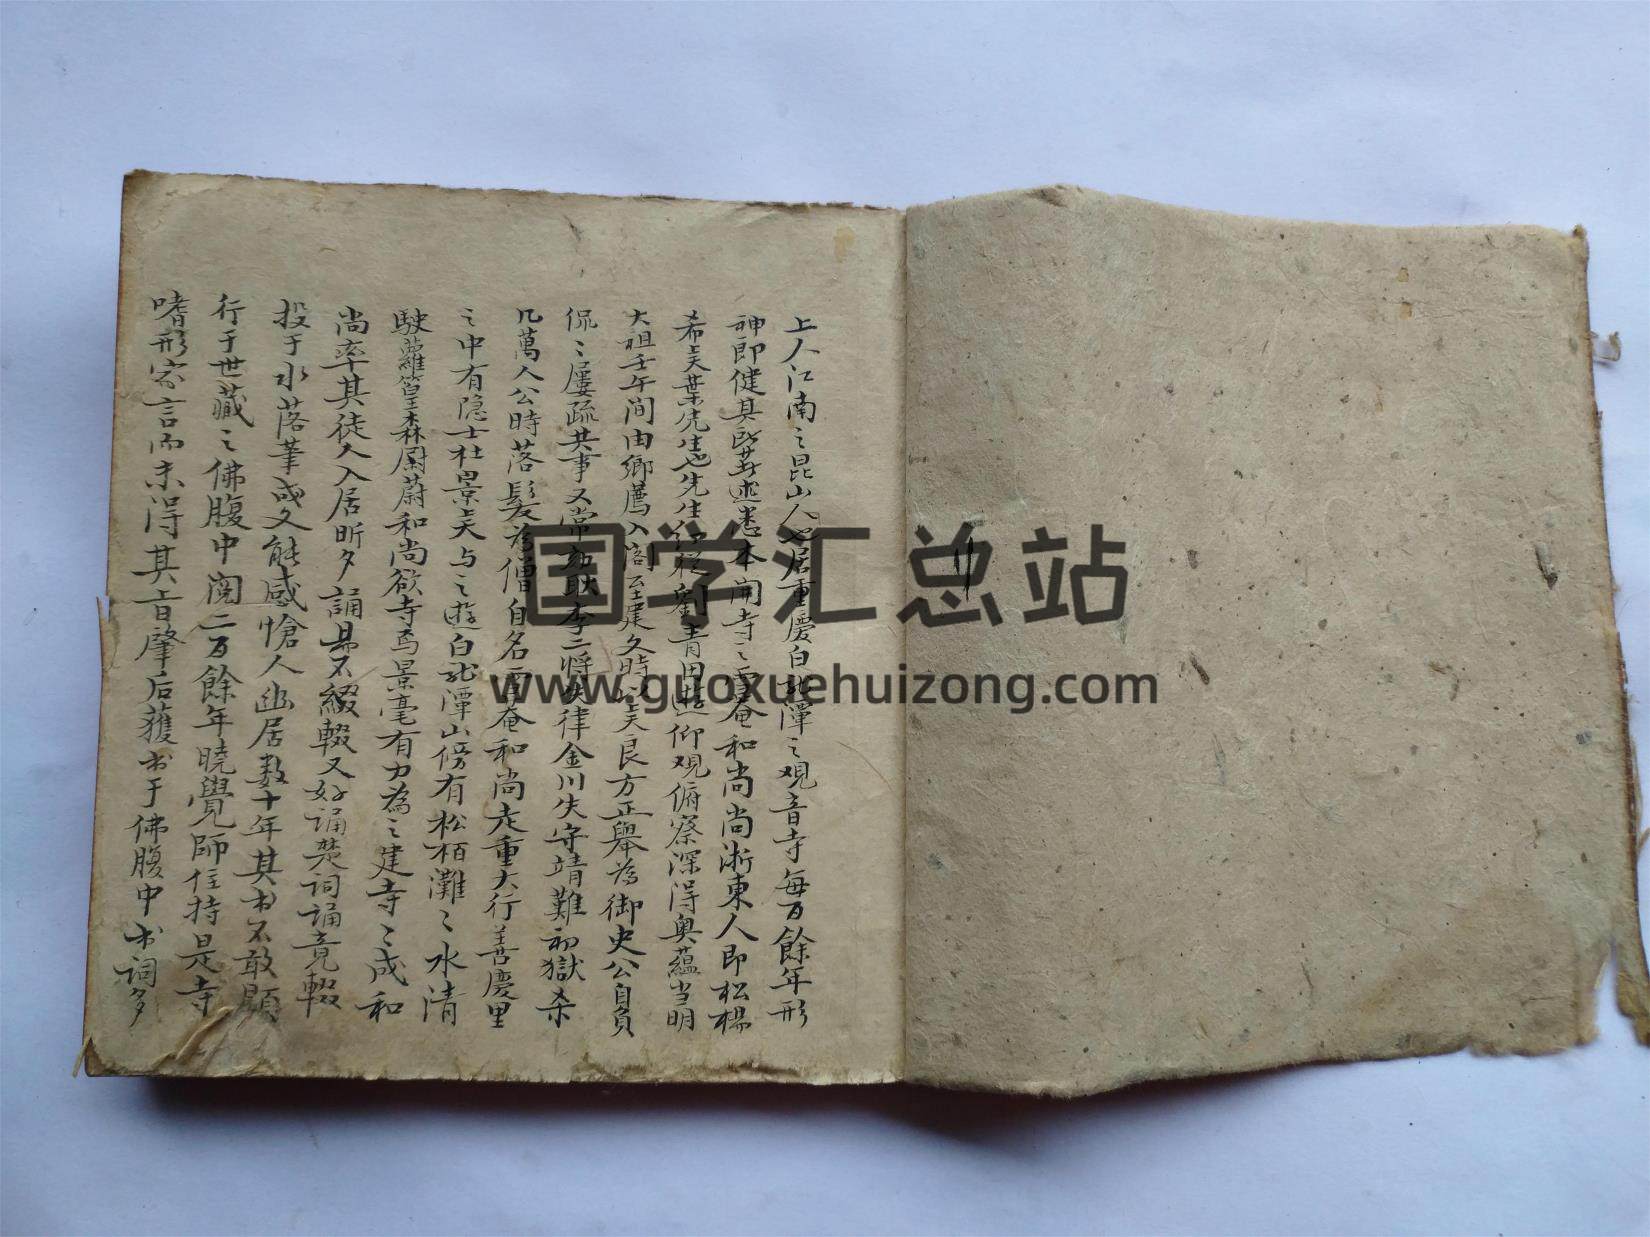 上人江南〻昆山人也居重慶白龍潭〻观音寺每百餘年形
神即健其所著述悉本開寺〻雪奄和尚尚浙東人即松楊
希吴葉先生也先生従劉青田遊仰观俯察深得奥蘊当明
大祖壬午间由鄉薦入阁至建文時以吴良方正舉為御史公自負
侃〻屢疏共事又常劾耿李二將失律金川失守靖難初獄杀
几萬人公時落髮為僧自名雪奄和尚走重大行善慶里
〻中有隐士杜景吴与〻遊白龍潭山傍有松栢灘〻水清
駛蘿篁森尉蔚和尚欲寺焉景毫有力為〻建寺〻成和
尚率其徒入居昕夕誦易不綴輟又好诵楚词诵竟輟
投于水落筆成文能感愴人幽居数十年其书不敢顕
行于世藏〻佛腹中阅二百餘年曉覺師住持是寺
嗜形家言而未得其旨肇后獲书于佛腹中书词多
国学汇总站
www.guoxuehuizong.com